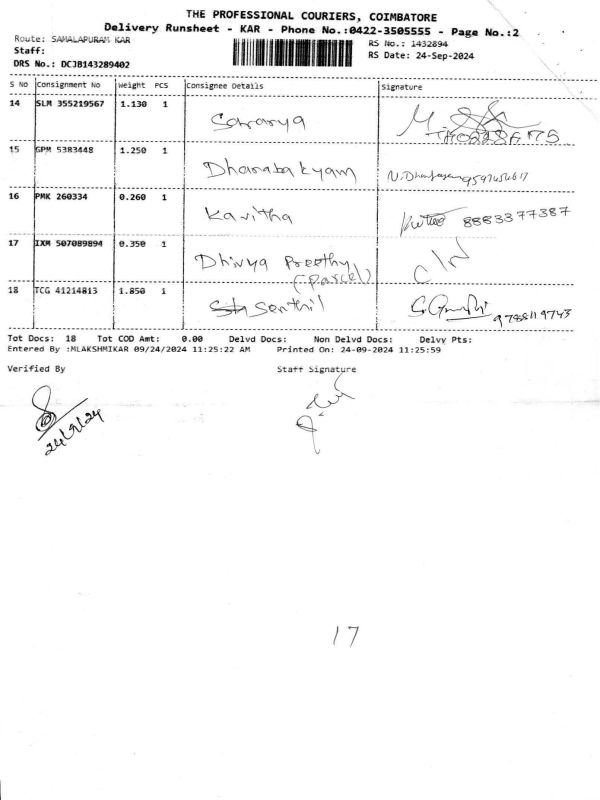 THE PROFESSIONAL COURIERS, COIMBATORE
Delivery Runsheet - KAR - Phone No.:0422-3505555 - Page No.:2
Route: SAMALAPURAM KAR
RS No.: 1432894
Staff:
RS Date: 24-Sep-2024
DRS No.: DCJB143289402
S No Consignment No Weight PCS Consignee Details Signature
14 SLM 355219567 1.130 1 Saranya
15 GPM 5383448 1.250 1 Dhanabakyam
16 PMK 260334 0.260 1 Kavitha 8883377387
17 IXM 507089894 0.350 1 Dhivya Preethy
(Parcel)
18 TCG 41214813 1.850 1 Senthil 9788119743
Tot Docs: 18 Tot COD Amt: 0.00 Delvd Docs: Non Delvd Docs: Delvy Pts:
Entered By :MLAKSHMIKAR 09/24/2024 11:25:22 AM Printed On: 24-09-2024 11:25:59
Verified By Staff Signature
24/9/24
17